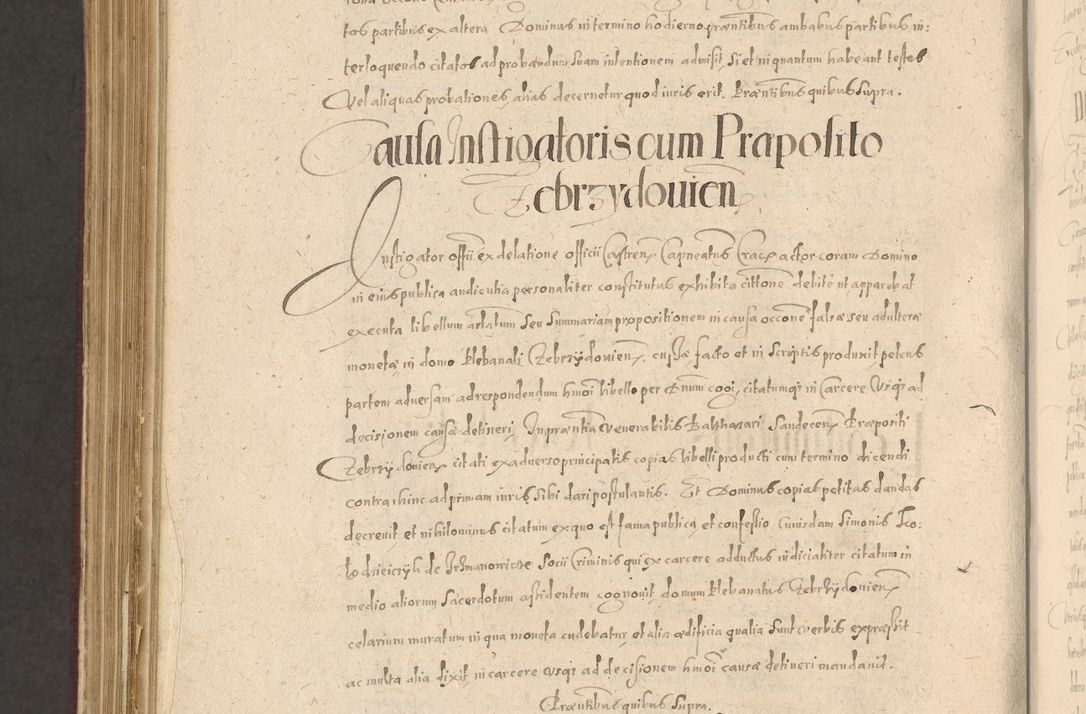 tos partibus ex altera Dominus in termino hodierno præntibus ambabus partibus in:
terloquendo citatos ad probandum suam intentionem admisit, si et in quantum habeant testes
Vel aliquas probationes, alias decernetur quod iuris erit. Præntibus quibus supra.
Causa Instigatoris cum Præposito
Zebrzydouien
Instigator offii ex delatione officii Castren Capneatus Crac actor coram Domino
in eius publica audientia personaliter constitutus exhibita cittone debite ut apparebat
executa libellum arlatum seu summariam propositionem in causa occone falsæ seu adulteræ
monetæ in domo Plebanali Zebrzydouien, cussæ facto et in scriptis produxit petens
partem aduersam ad respondendum hmoi libello per Dnum cogi, citatumqz in Carcere Usqz ad
decisionem causæ detineri, In præntia Venerabilis Balthazari Sandecen Præpositi
Zebrzydouien citati ex aduerso principalis copias libelli producti cum termino dicendi
contra hinc ad primam iuris sibi dari postulantis. Et Dominus copias petitas dandas
decreuit et nihilominus citatum ex quo est fama publica et confessio Cuiusdam Simonis
de socii Criminis qui ex carcere adductus iudicialiter citatum in
medio aliorum sacerdotum assidentem cognouit domum Plebanatus Zebrzydouien
celarium muratum in qua moneta cudebatur et alia ædificia qualia sunt verbis expressit
ac multa alia dixit, in carcere usqz ad decisionem hmoi causæ detineri mandauit.
Præntibus quibus supra.